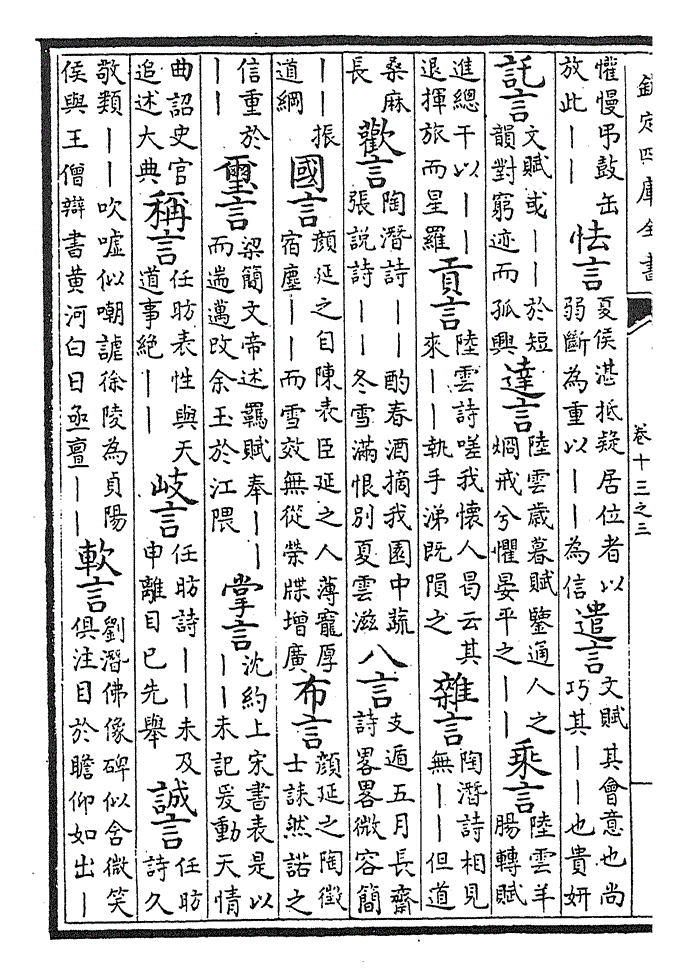 欽定四庫全書 卷十三之三
懼慢弔鼓缶放此——怯言夏侯湛抵疑居位者以弱斷為重以——為信遣言文賦其會意也尚巧其——也貴妍
託言文賦或——於短韻對窮迹而孤興達言陸雲歲暮賦鑒通人之烱戒兮懼晏平之——乘言陸雲羊腸轉賦
進總干以——退揮旅而星羅貢言陸雲詩嗟我懷人曷云其來——執手涕既隕之雜言陶潛詩相見無——但道
桑麻長歡言陶潛詩——酌春酒摘我園中蔬張說詩——冬雪滿恨別夏雲滋八言支遁五月長齋詩畧畧微容簡
——振道綱國言顔延之自陳表臣延之人薄寵厚宿塵——而雪效無從榮牒增廣布言顔延之陶徵士誄然諾之
信重於——璽言梁簡文帝述羈賦奉——而遄邁改余玉於江隈掌言沈約上宋書表是以——未記爰動天情
曲詔史官追述大典稱言任昉表性與天道事絶——岐言任昉詩——未及申離目已先舉誠言任昉詩久
敬類——吹噓似嘲謔徐陵為貞陽侯與王僧辯書黄河白日亟亶——軟言劉潛佛像碑似含微笑俱注目於瞻仰如出—